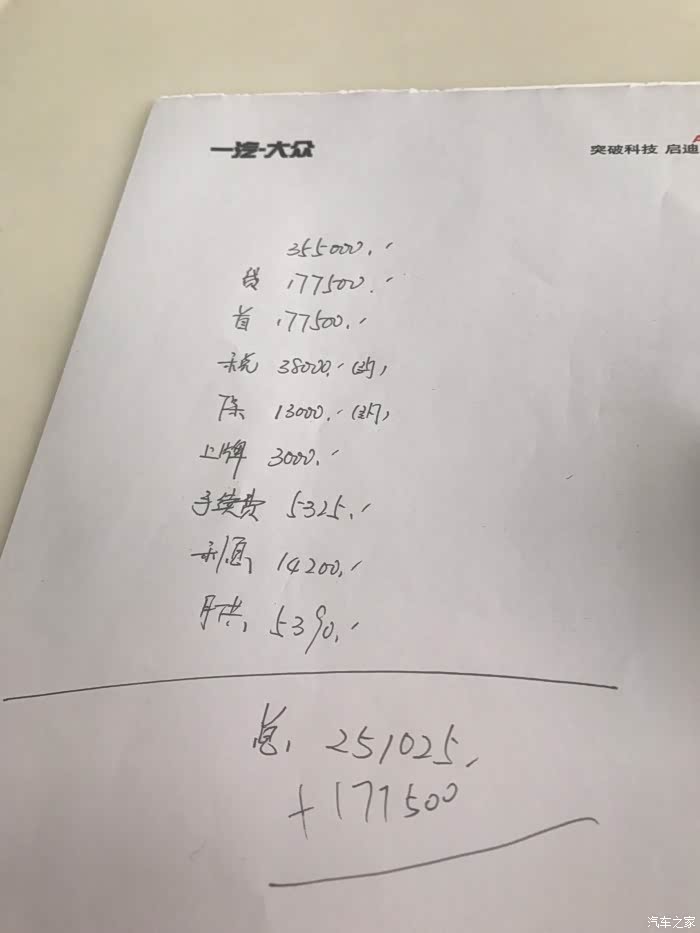 一汽-大众
突破科技 启迪
355000.
贷 177500.
首 177500.
税 38000.(约)
保 13000.(约)
上牌 3000.
手续费 5325.
利息 14200.
月供 5390.
总 251025.
+177500
汽车之家